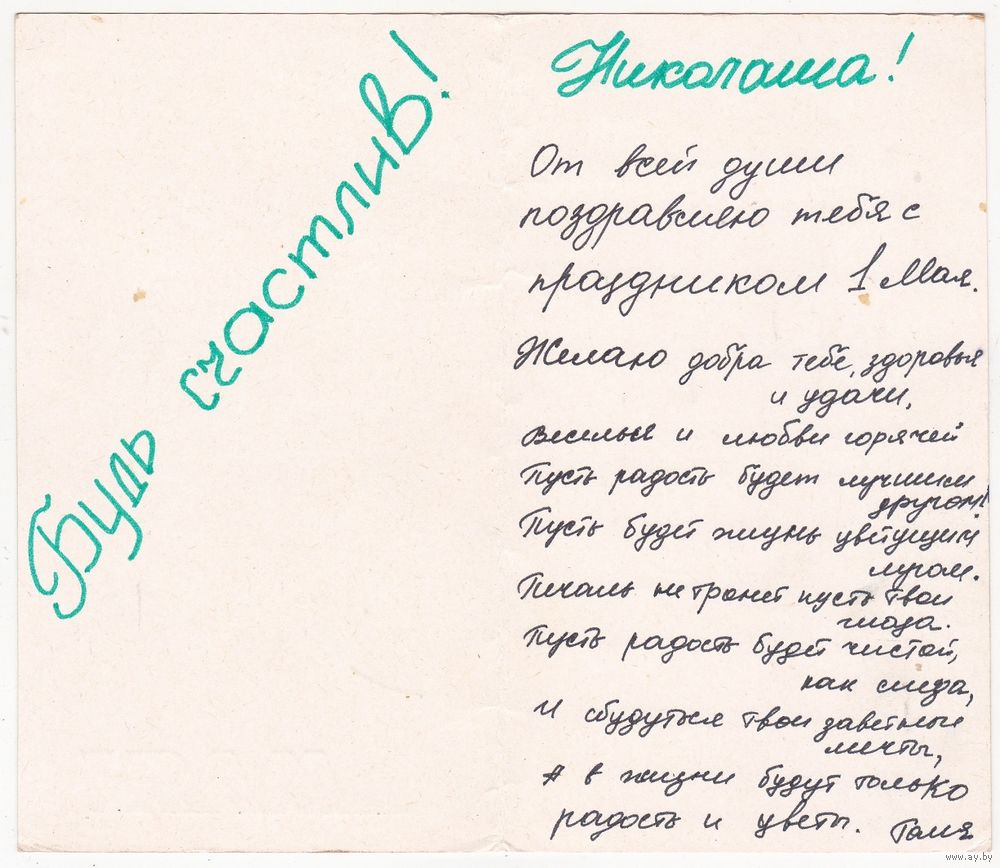 Будь счастлив!
Николаша!
От всей души
поздравляю тебя с
праздником 1 Мая.
Желаю добра тебе, здоровья
и удачи,
веселья и любви горячей
Пусть радость будет лучшим
другом!
Пусть будет жизнь цветущим
лугом.
Печаль не тронет пусть твои
глаза.
Пусть радость будет чистой,
как слеза,
И сбудуться твои заветные
мечты,
А в жизни будут только
радость и цветы. Галя
www.ay.by